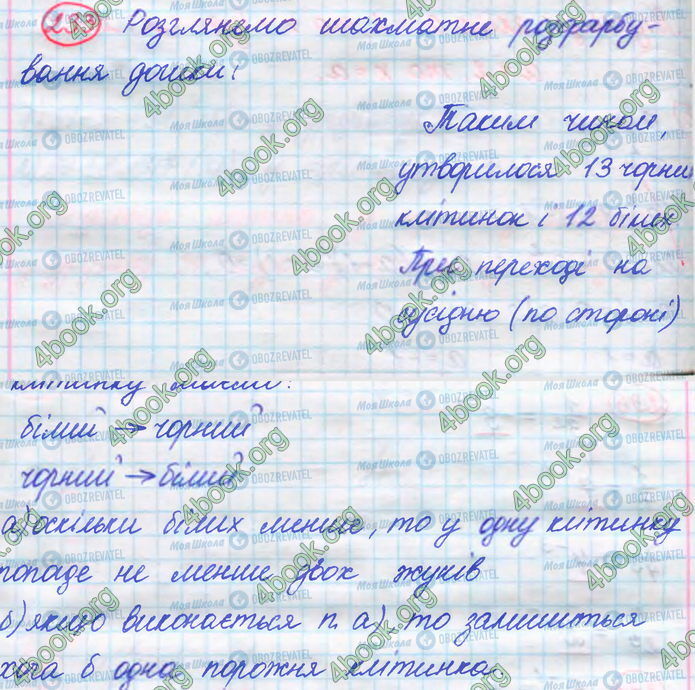 Розглянемо шахматне розфарбу-
вання дошки:
Таким чином,
утворилося 13 чорни
клітинок і 12 білих
При переході на
сусідню (по стороні)
клітинку маємо:
білий → чорний
чорний → білий
а) оскільки білих менше, то у одну клітинку
попаде не менше двох жуків
б) якщо виконається п. а), то залишиться
хоча б одна порожня клітинка.